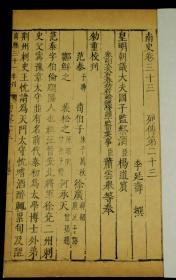 南史卷三十三 列傳第二十三
李延壽 撰
皇明朝議大夫國子監祭酒臣楊道賓
司業事臣蕭雲舉等奉
勅重校刊
范泰 荀伯子 徐廣
鄭鮮之 裴松之 何承天
范泰字伯倫順陽人也祖汪晉安北將軍徐兗二州刺
史父寗豫章太守並有名前代泰初為太學博士外弟
荊州刺史王忱請為天門太守忱嗜酒醉輒累旬及醒